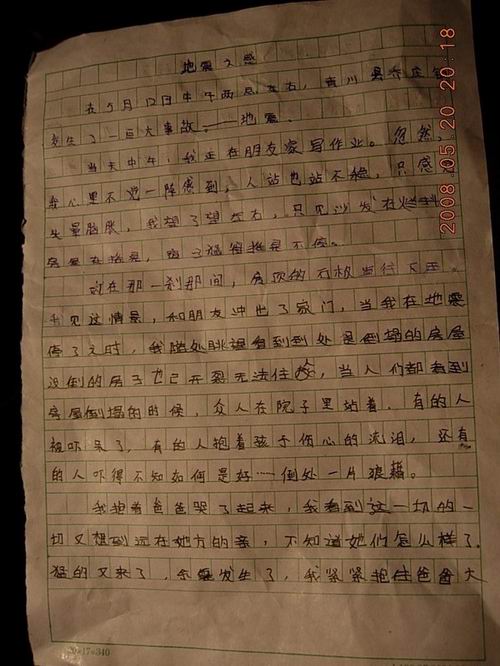 地震之感
在5月12日中午两点左右，青川县乔庄
发生了一巨大事故。——地震。
当天中午，我正在朋友家写作业。忽然，
我心里不觉一阵感到，人站也站不稳，只感
头晕脑胀，我望了望左右，只见沙发在
房屋在摇晃，
就在那一刹那间，房顶的石板
见这情景，和朋友冲出了家门，当我在地震
停了之时，我随处眺望看到到处是倒塌的房屋
没倒的房子也已开裂无法住，当人们都看到
房屋倒塌的时候，众人在院子里站着。有的人
被吓呆了，有的人抱着孩子伤心的流泪，还有
的人吓得不知如何是好……倒处一片狼藉。
我抱着爸爸哭了起来，我看到这一切的一
切又想到远在她方的亲，不知道她们怎么样了。
猛的又来了，余震发生了，我紧紧抱住爸爸大
20×17=340
2008 05 20 20:18